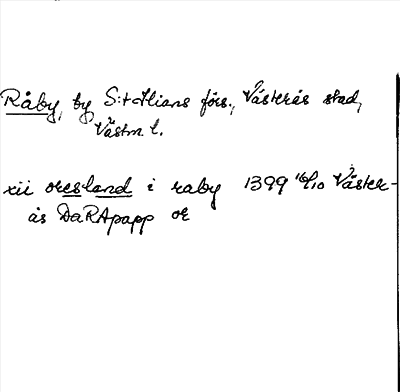 Råby, by S:t Ilians förs., Västerås stad,
Västm l.
xii oresland i raby 1399 16/10 Väster-
ås DaRApapp or